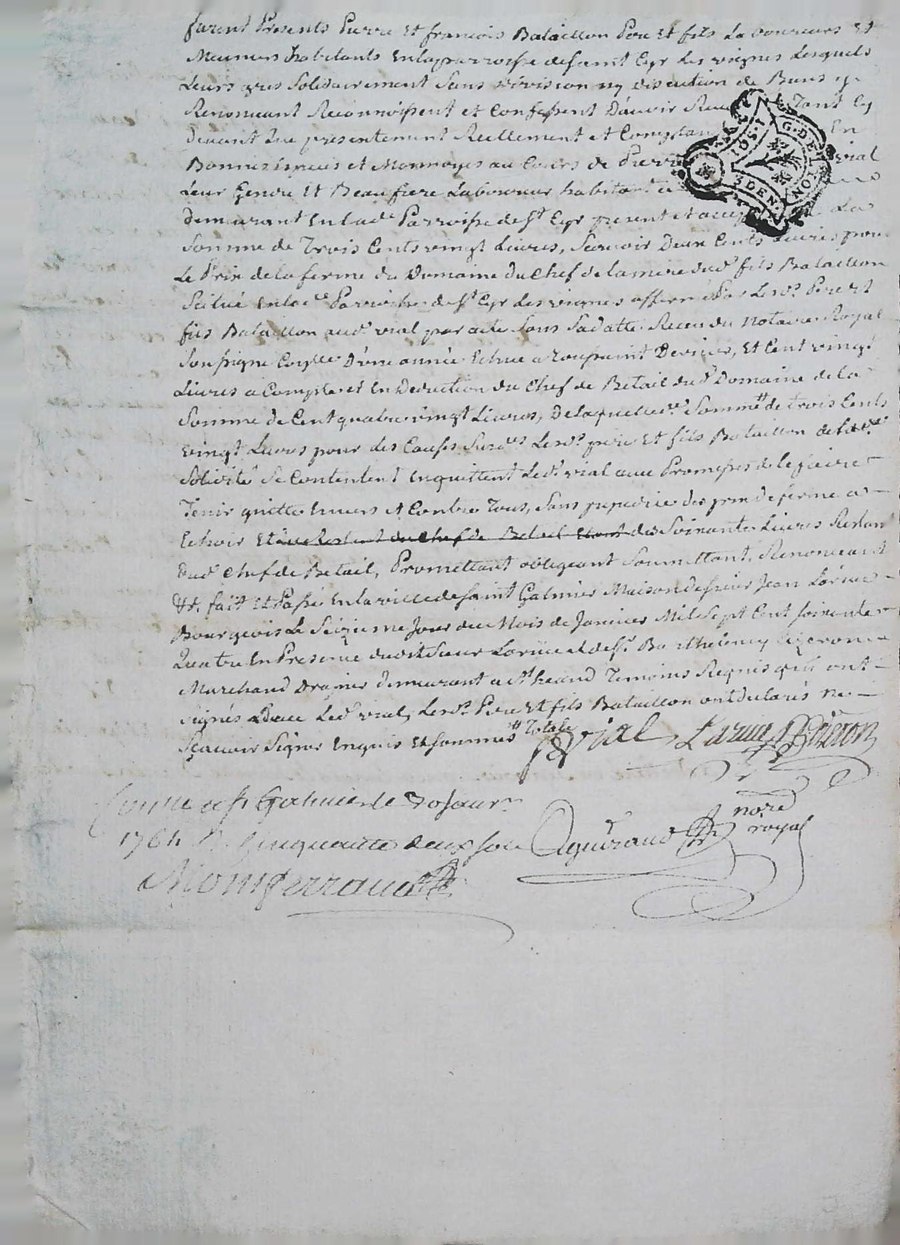 furent Presents Pierre Et francois Bataillon Pere Et fils Laboureurs Et
Meuniers habitants En la parroisse de saint Cyr Les vignes Lesquels
Leurs gres Solidairement Sans division ny discution de Biens y
Renonçant Reconnoissent et Confessent D'avoir Receu Tant Cy
devant que presentement Reellement et Comptan En
Bonnes Especes et Monnoyes au Cours de Pierre vial
Leur Gendre Et Beaufrere Laboureur habitant
demeurant En lade Parroisse de St Cyr present et La
Somme de Trois Cents vingt Livres, Scavoir Deux Cents Livres pour
Le Prix de la ferme du Domaine du Chef de la mere dud fils Bataillon
Scitué En lade Parroisse de St Cyr Les vignes affermé Par Lesd Pere Et
fils Bataillon aud vial par acte Sous Sa datte Receu du Notaire Royal
Soussigné D'une année Echue a Et Cent vingt
Livres a Compte et En Deduction du Chef de Betail dud Domaine de la
Somme de Cent quatre vingt Livres, De laquelle Somme de trois Cents
vingt Livres pour les Causes Susdes Lesd pere Et fils Bataillon de lade
Solidité Se Contentent En quittent Led vial avec Promesses de le faire
Tenir quitte Envers et Contre Tous, Sans prejudice des prix de ferme a
Echoir Et du Restant du Chef de Betail Etant des Soixante Livres
dud Chef de Betail, Promettant obligeant Soumettant, Renonceant
&c. fait Et Passé En la ville de Saint Galmier Maison de Sieur Jean Larüe
Bourgeois Le Seizieme Jour du Mois de Janvier Mil Sept Cent Soixante
Quatre En Presence dudit Sieur Larüe et de Sr Barthelemy
Marchand Drapier demeurant a St heand Temoins Requis qui ont
Signés avec Led vial, Lesd Pere Et fils Bataillon ont declarés ne
Scavoir Signer Enquis Et Sommés
G. DE
LION
3 DEN.
vial Larüe
Conlle a St Galmier le 20 Janr
1764 R. Cinquante deux sols
nore
royal
Monferrand